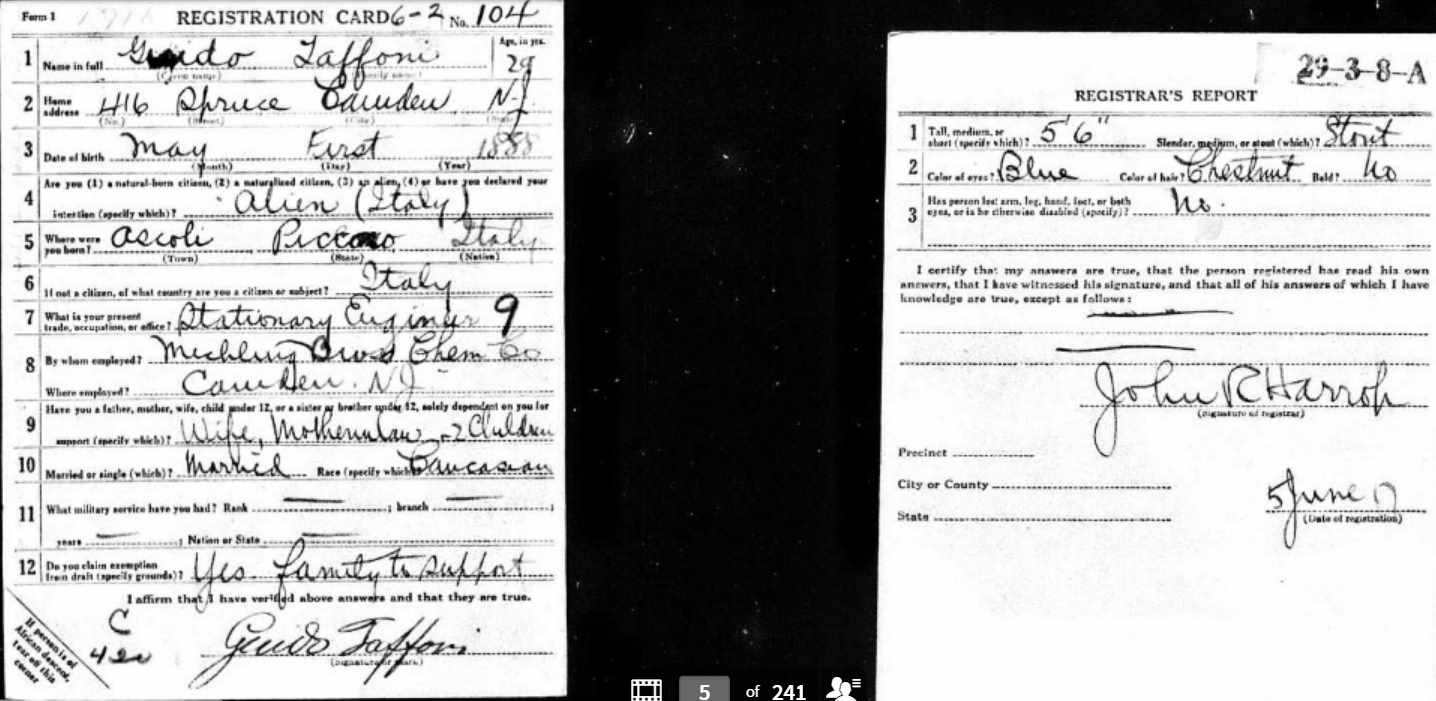 Form 1 REGISTRATION CARD 6-2 No. 104
1 Name in full Guido Taffoni Age, in yrs. 29
(Given name) (Family name)
2 Home address 416 Spruce Camden N.J.
(No.) (Street) (City) (State)
3 Date of birth May First 1888
(Month) (Day) (Year)
4 Are you (1) a natural-born citizen, (2) a naturalized citizen, (3) an alien, (4) or have you declared your
intention (specify which)? Alien (Italy)
5 Where were you born? Ascoli Piceno Italy
(Town) (State) (Nation)
6 If not a citizen, of what country are you a citizen or subject? Italy
7 What is your present trade, occupation, or office? Stationary Enginer 9
8 By whom employed? Mechling Bros Chem Co
Where employed? Camden. N.J
9 Have you a father, mother, wife, child under 12, or a sister or brother under 12, solely dependent on you for
support (specify which)? Wife, Motherinlaw, 2 Children
10 Married or single (which)? Married Race (specify which)? Caucasian
11 What military service have you had? Rank ; branch ;
years ; Nation or State
12 Do you claim exemption from draft (specify grounds)? Yes family to support
I affirm that I have verified above answers and that they are true.
C
420
Guido Taffoni
(Signature or mark)
If person is of
African descent,
tear off this
corner
29-3-8-A
REGISTRAR'S REPORT
1 Tall, medium, or short (specify which)? 5'6" Slender, medium, or stout (which)? Stout
2 Color of eyes? Blue Color of hair? Chestnut Bald? No
3 Has person lost arm, leg, hand, foot, or both
eyes, or is he otherwise disabled (specify)? No.
I certify that my answers are true, that the person registered has read his own
answers, that I have witnessed his signature, and that all of his answers of which I have
knowledge are true, except as follows:
John R Harrop
(Signature of registrar)
Precinct
City or County
State
5 June 17
(Date of registration)
5 of 241